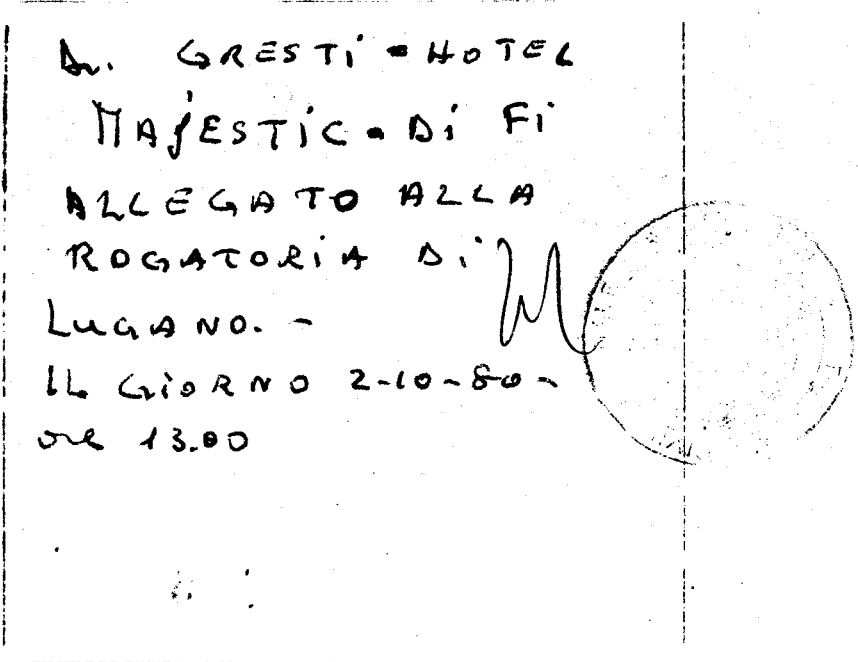 Dr. GRESTI - HOTEL
MAJESTIC - Di Fi
ALLEGATO ALLA
ROGATORIA Di
LUGANO. -
IL GIORNO 2-10-80-
ore 13.00